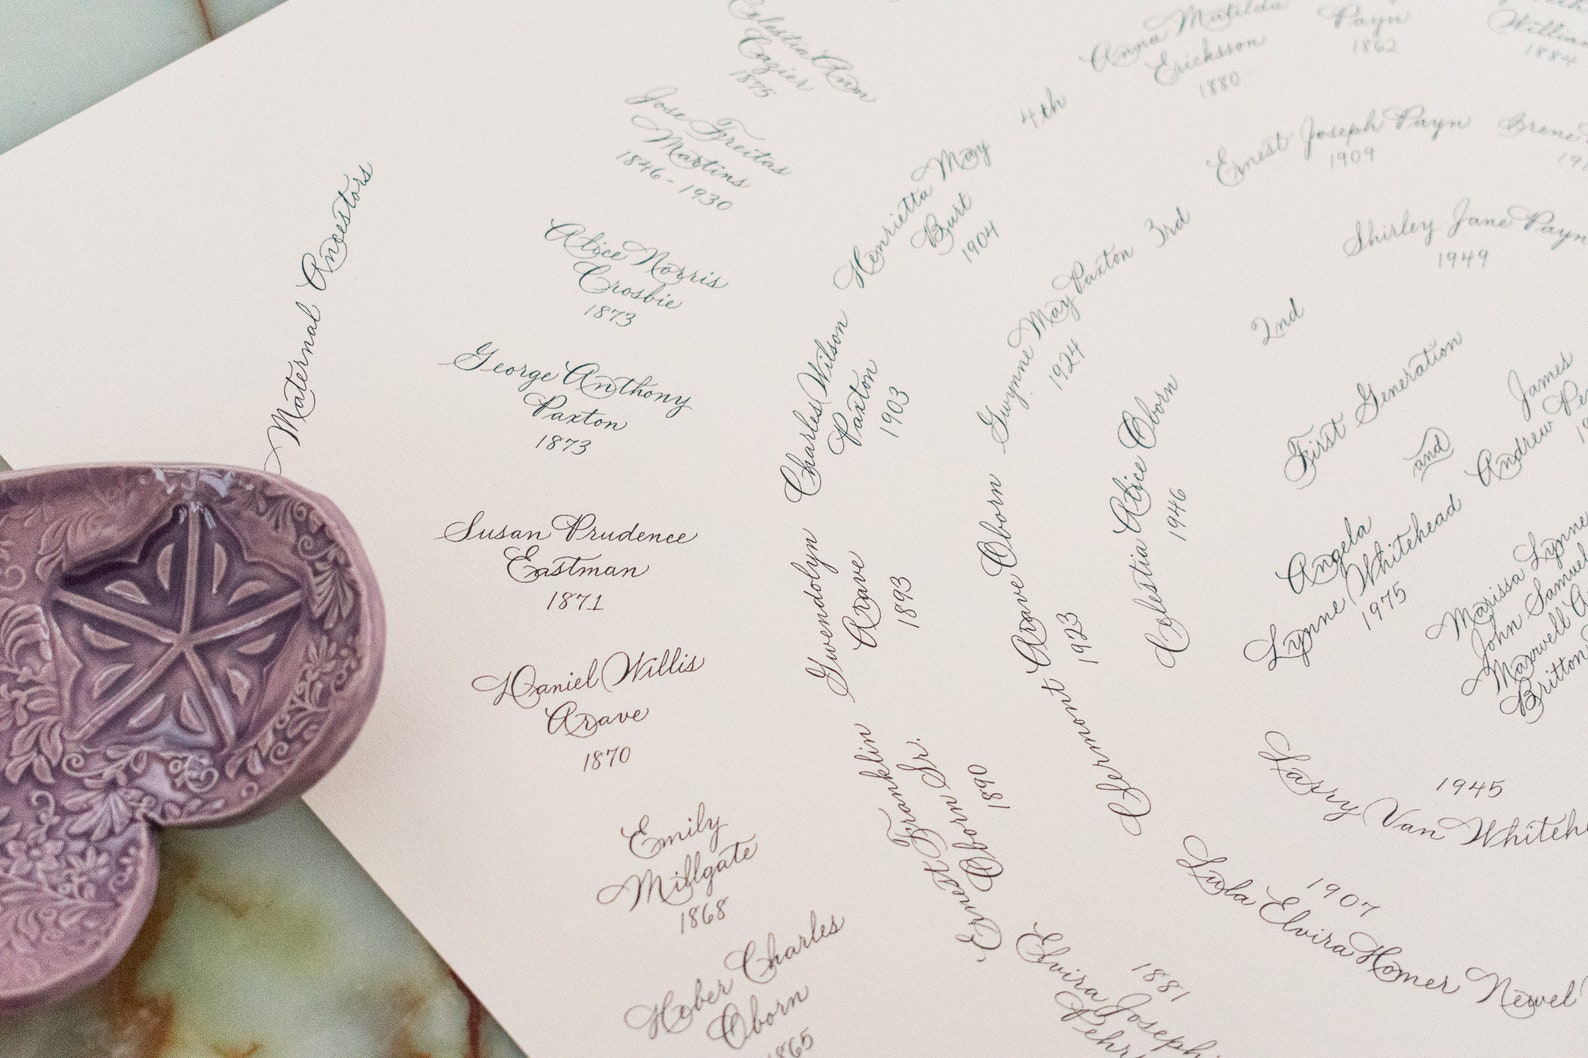 Maternal Ancestors
Celestia Ann
Cazier
1875
Jose Freitas
Martins
1846 - 1930
Alice Norris
Crosbie
1873
George Anthony
Paxton
1873
Susan Prudence
Eastman
1871
Daniel Willis
Arave
1870
Emily
Millgate
1868
Heber Charles
Oborn
1865
4th
Henrietta May
Burt
1904
Charles Wilson
Paxton
1903
Gwendolyn
Arave
1893
Ernest Franklin
Oborn Sr.
1890
1881
Elvira Joseph
Anna Matilda
Ericksson
1880
Payn
1862
William
1884
Ernest Joseph Payn
1909
Irene
3rd
Gwynne May Paxton
1924
Clermont Arave Oborn
1923
1907
Lula Elvira Homer Newel
Shirley Jane Payn
1949
2nd
Celestia Alice Oborn
1946
1945
Larry Van Whiteh
First Generation
Angela
Lynne Whitehead
1975
and
James
Andrew Pe
Marissa Lynne
John Samuel
Maxwell A
Britton